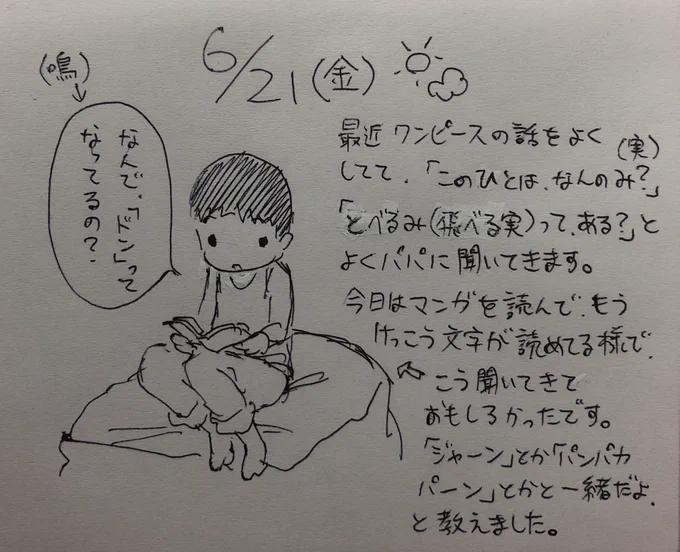 6/21(金)
(鳴)
なんで、「ドン」って
なってるの?
最近ワンピースの話をよく
してて、「このひとは、なんのみ?」
(実)
「とべるみ(飛べる実)って、ある?」と
よくパパに聞いてきます。
今日はマンガを読んで、もう
けっこう文字が読めてる様で、
こう聞いてきて
おもしろかったです。
「ジャーン」とか「パンパカ
パーン」とかと一緒だよ、
と教えました。